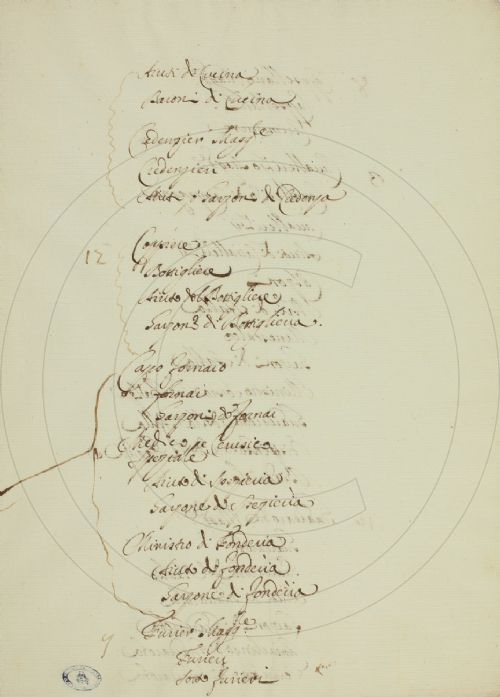 Aiuti di Cucina
Garzoni di Cucina
Credenzier Magg.re
Credenzieri
Aiuti e Garzoni di Credenza
12
Bottigliere
Aiuto del Bottigliere
Garzone di Bottiglieria.
Capo fornaio
fornai
Garzoni de fornai
Medico e Cerusico
Speziale
Aiuto di Spezieria
Garzone di Spezieria
Ministro di Fonderia
Aiuto di fonderia
Garzone di fonderia
Furier Magg.re
Furieri
Sotto furieri